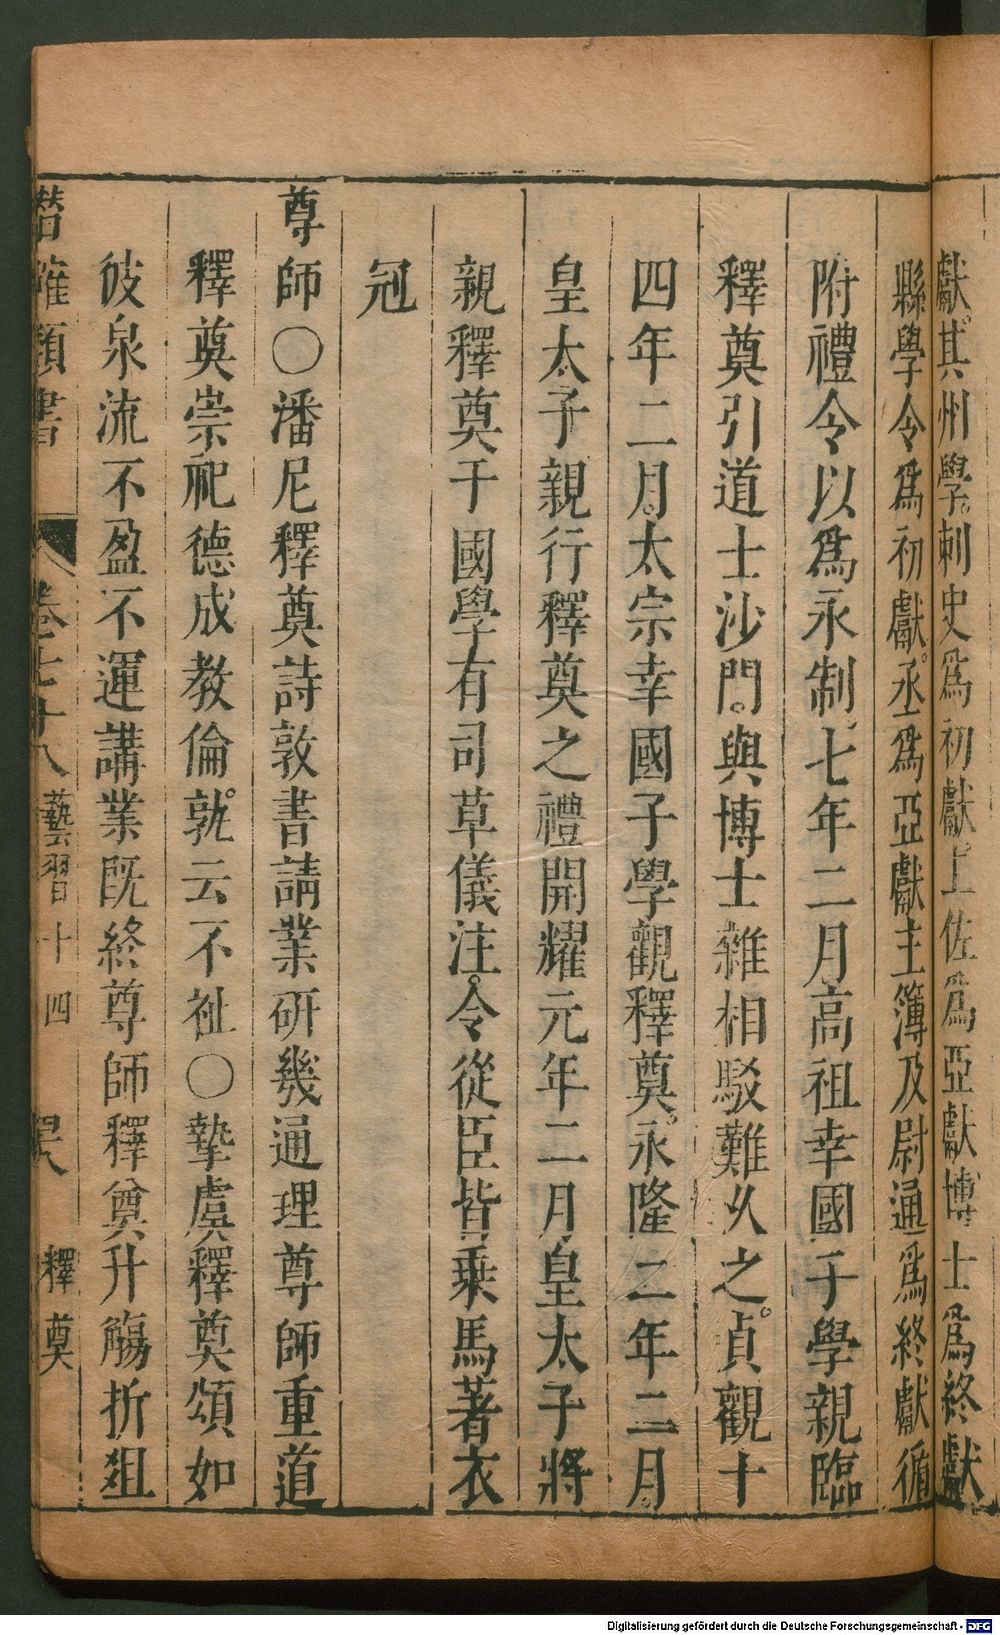 獻其州學刺史爲初獻上佐爲亞獻博士爲終獻
縣學令爲初獻丞爲亞獻主簿及尉通爲終獻循
附禮令以爲永制七年二月高祖幸國子學親臨
釋奠引道士沙門與博士雜相駁難久之貞觀十
四年二月太宗幸國子學觀釋奠永隆二年二月
皇太子親行釋奠之禮開耀元年二月皇太子將
親釋奠于國學有司草儀注令從臣皆乗馬著衣
冠
尊師〇潘尼釋奠詩敦書請業研幾通理尊師重道
釋奠崇祀德成教倫孰云不祉〇摯虞釋奠頌如
彼泉流不盈不運講業既終尊師釋奠升觴折俎
潛確類書 卷七十八 藝習十四 釋奠
Digitalisierung gefördert durch die Deutsche Forschungsgemeinschaft - DFG